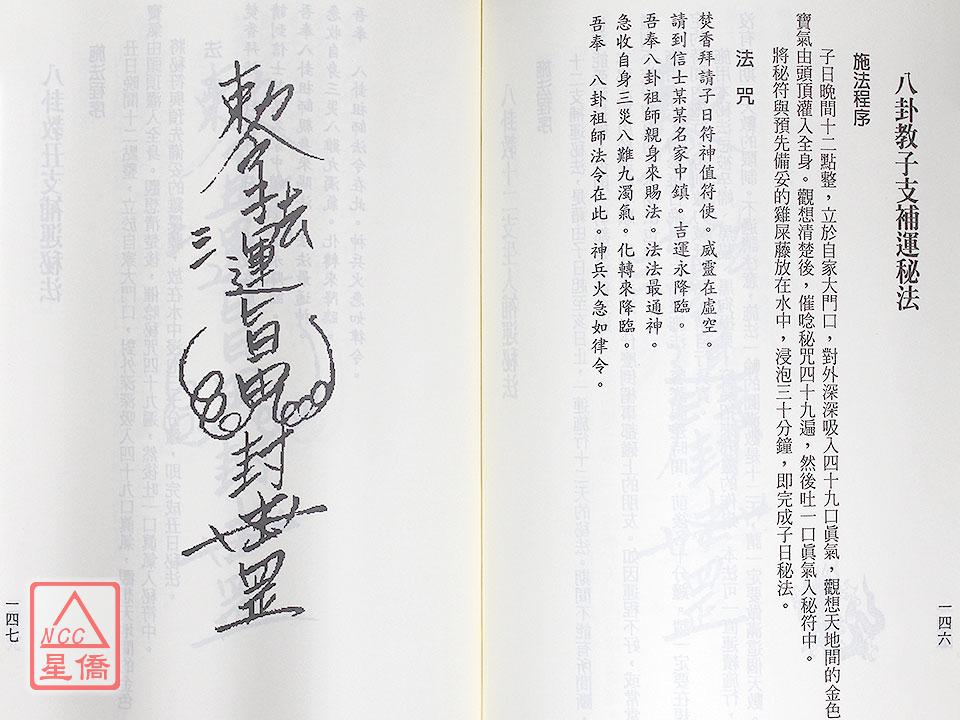 八卦教子支補運秘法
施法程序
子日晚間十二點整，立於自家大門口，對外深深吸入四十九口眞氣，觀想天地間的金色
寶氣由頭頂灌入全身。觀想清楚後，催唸秘咒四十九遍，然後吐一口眞氣入秘符中。
將秘符與預先備妥的雞屎藤放在水中，浸泡三十分鐘，即完成子日秘法。
法咒
焚香拜請子日符神值符使。威靈在虛空。
請到信士某某名家中鎮。吉運永降臨。
吾奉八卦祖師親身來賜法。法法最通神。
急收自身三災八難九濁氣。化轉來降臨。
吾奉　八卦祖師法令在此。神兵火急如律令。
一四六
三運法
旨
封
罡
一四七
NCC
星僑